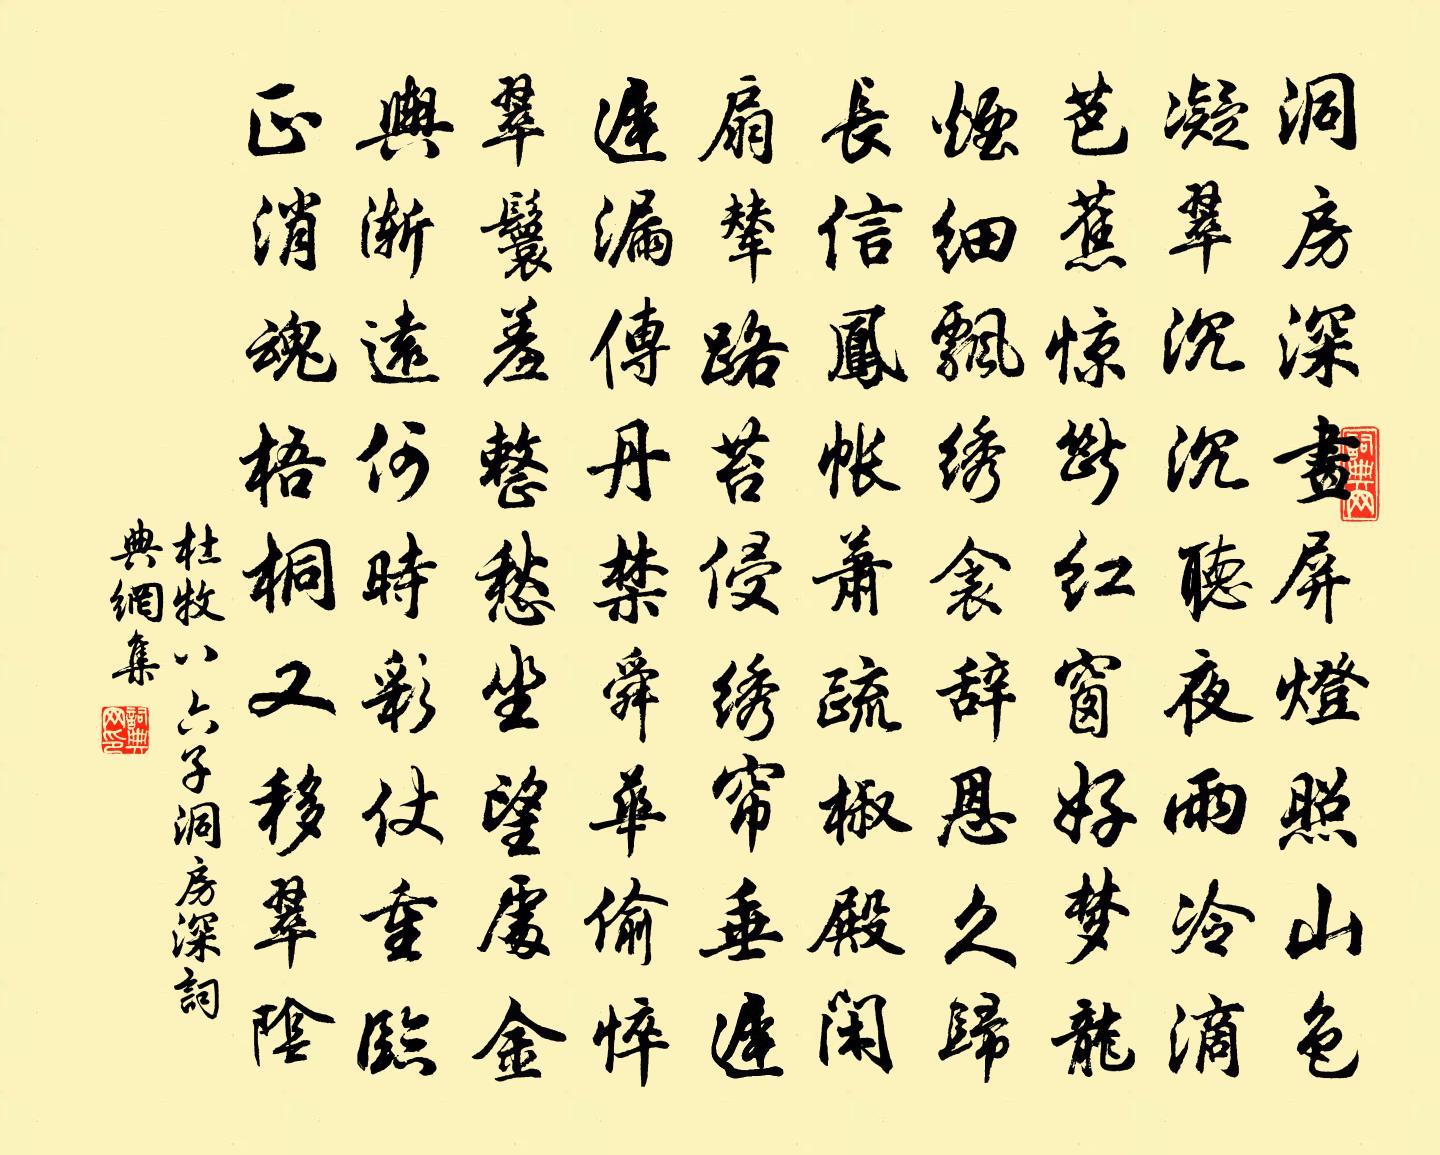 洞房深畫屏燈照山色
凝翠沉沉聽夜雨冷滴
芭蕉惊斷红窗好梦龍
煙细飄绣衾辞恩久歸
長信鳳帳萧疏椒殿閑
扇輦路苔侵绣帘垂遲
遲漏傳丹禁舜華偷悴
翠鬟羞整愁坐望處金
輿漸遠何時彩仗重臨
正消魂梧桐又移翠陰
杜牧八六子洞房深詞
典網集
詞典网
詞典网印